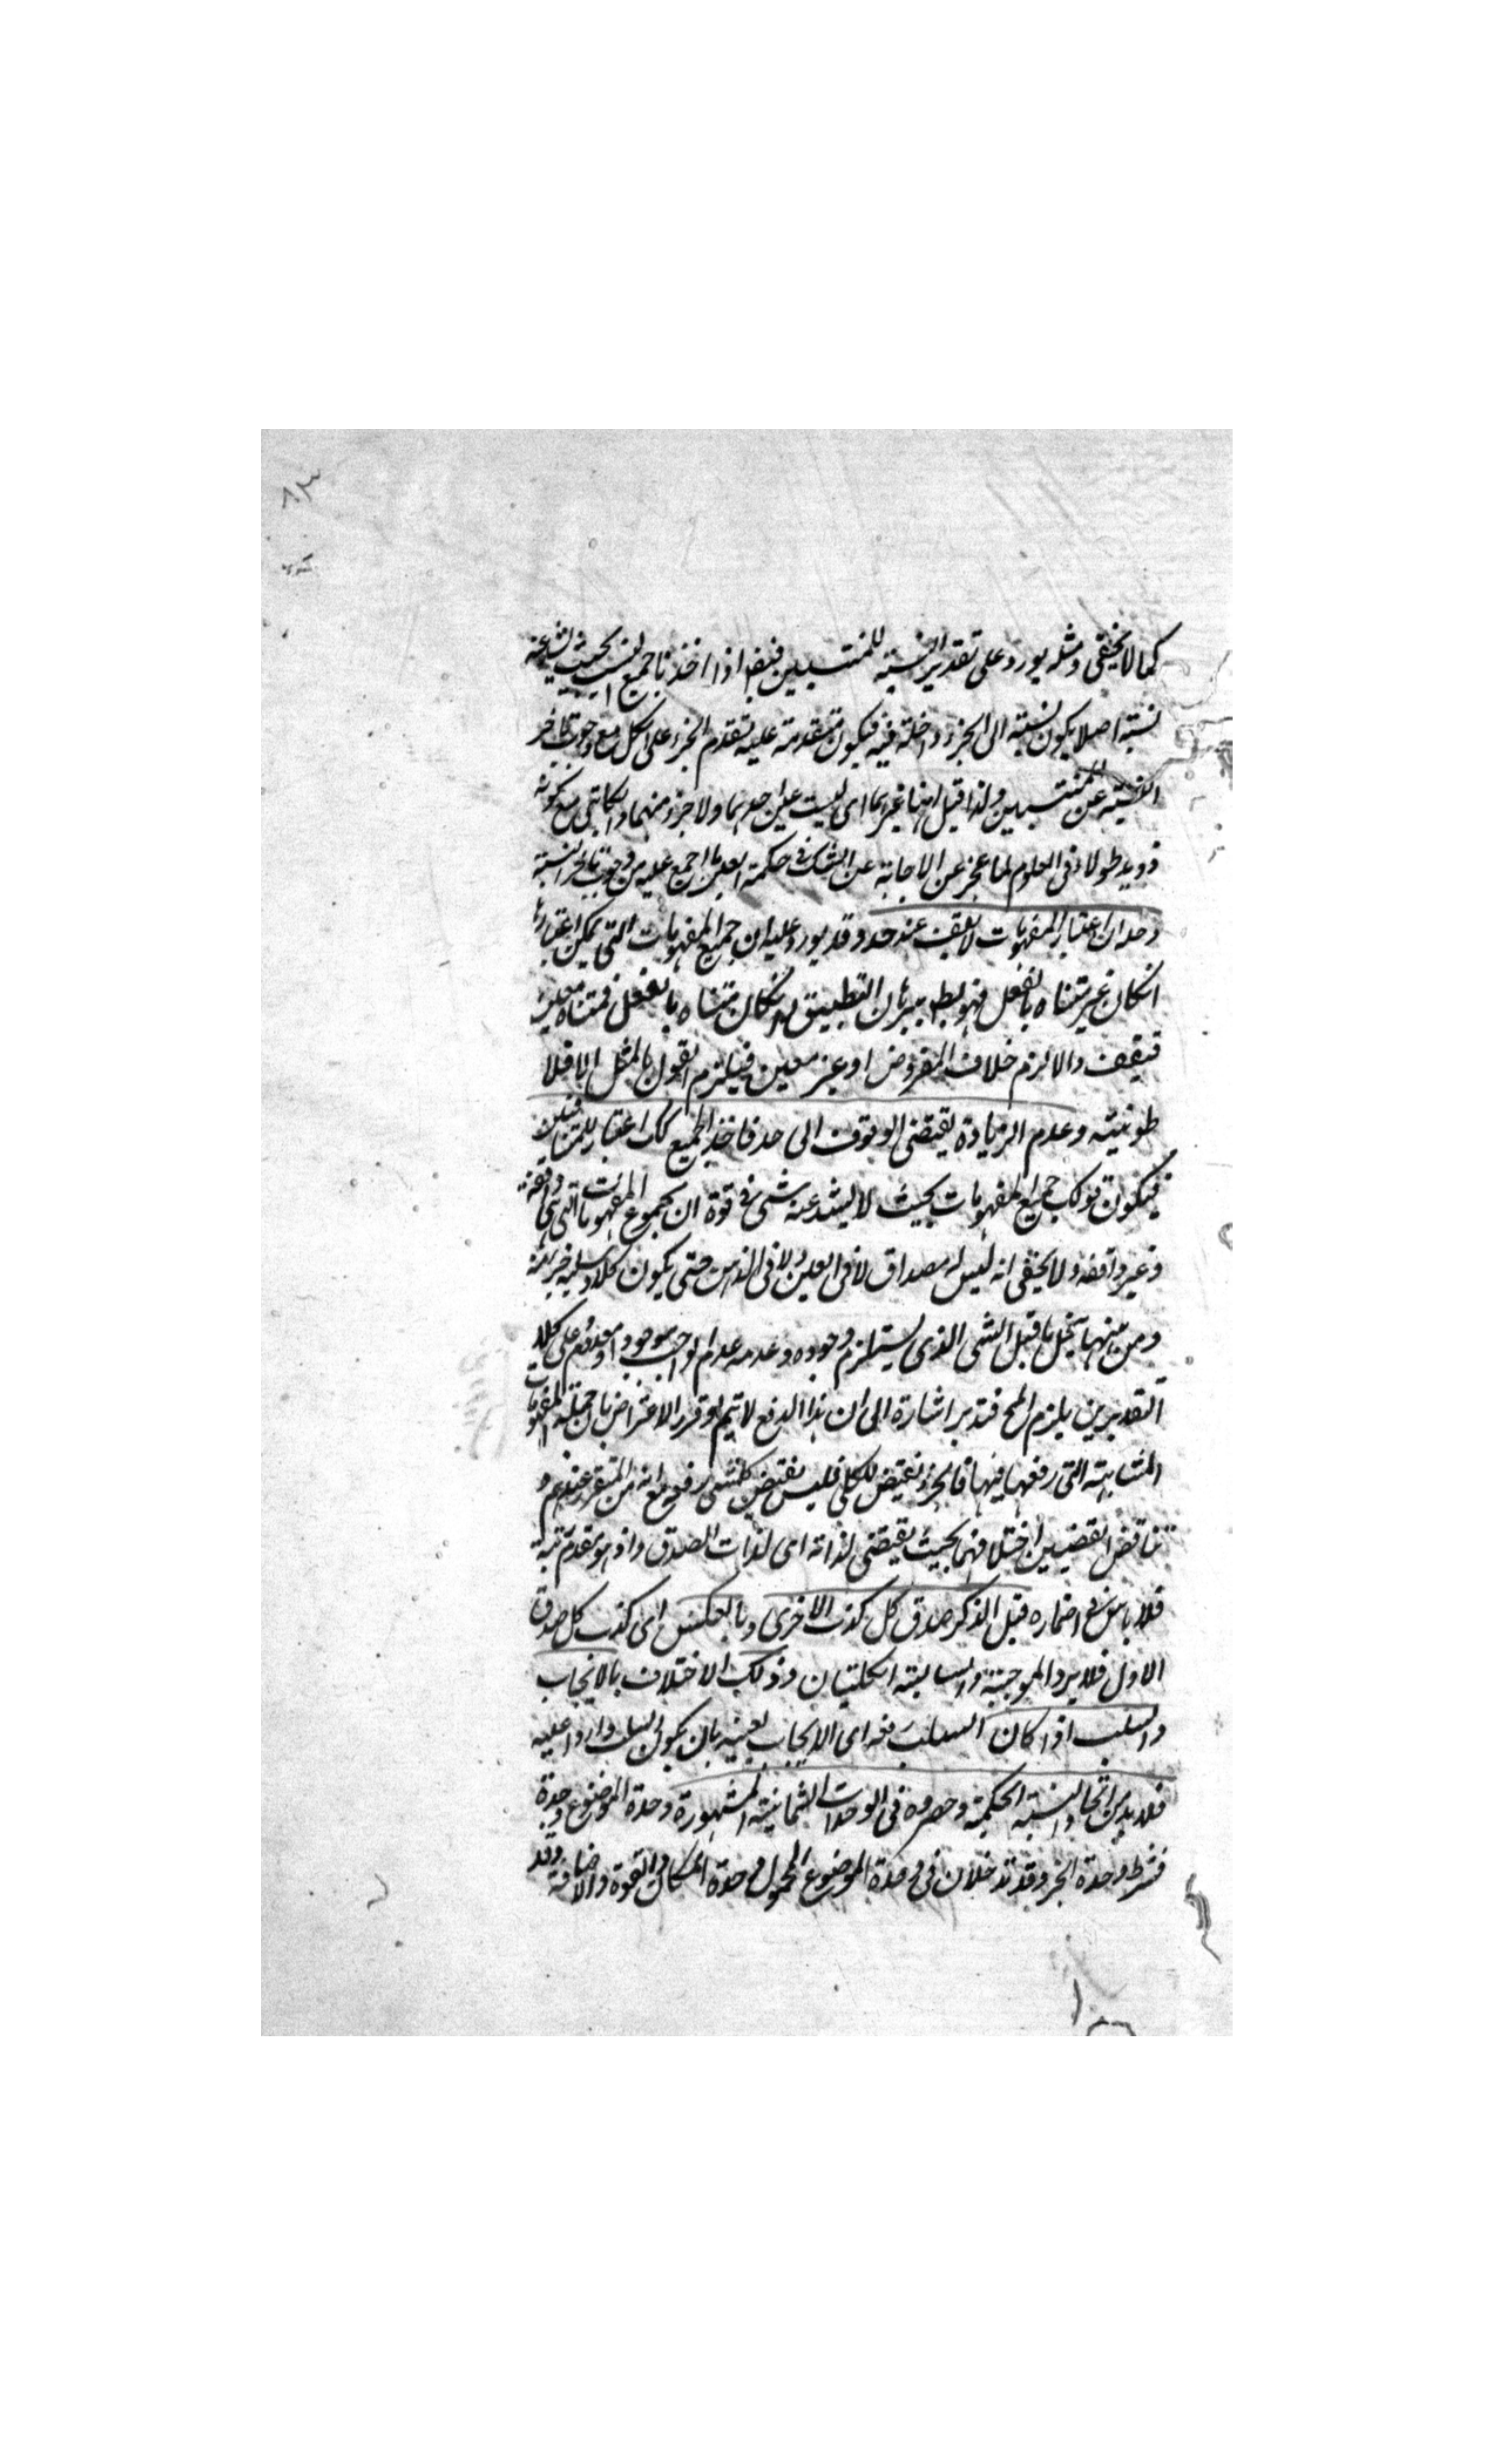 ٨٣
كما لا يخفى ومثله يورد على تقدير النسبة للمنتسبين فنقض اذا اخذنا جميع النسب بحيث لا يشذ عنه
نسبة اصلا يكون نسبته الى الجزء داخلة فيه فيكون متقدمة عليه تقدم الجزء على الكل مع وجوب تاخر
النسبة عن المنتسبين ولذا قيل انها غيرهما اى ليست عين احدهما ولا جزء منهما والكاتبى مع كونه
ذو يد طولاء فى العلوم لما عجز عن الاجابة عن الشك فى حكمة العين ما اجمع عليه من وجوب تاخر النسبة
وحله ان اعتبار المفهومات لا يقف عند حد وقد يورد عليه ان جميع المفهومات التى يمكن اعتبارها
انكان غير متناه بالفعل فهو بط ببرهان التطبيق وانكان متناه بالفعل فمتناه معين
فيقف والا لزم خلاف المفروض او غير معين فيلزم القول بالمثل الافلا
طونية وعدم الزيادة يقتضى الوقوف الى حد فاخذ الجميع كك اعتبار للمتنافيين
فيكون قولك جميع المفهومات بحيث لا يشذ عنه شئ فى قوة ان مجموع المفهومات التى هى واقفة
وغير واقفة ولا يخفى انه ليس له مصداق لا فى العين ولا فى الذهن حتى يكون كلا وسلبه جزء منه
ومن ههنا ينحل ما قيل الشئ الذى يستلزم وجوده وعدمه عدم الواجب موجود او معدوم على كلا
التقديرين يلزم المح فتدبر اشارة الى ان هذا الدفع لا يتم لو قرر الاعتراض بان جملة المفهومات
المتناهية التى رفعها فيها فالجزء نقيض للكل فليس نقيض كل شئ رفعه مع انه من المتقرر عندهم و
تناقض القضيتين اختلافهما بحيث يقتضى لذاته اى لذات الصدق واذ هو متقدم رتبة
فلا باس فى اضماره قبل الذكر صدق كل كذب الاخرى وبالعكس اى كذب كل صدق
الاول فلا يرد الموجبة والسالبة الكليتان وذلك الاختلاف بالايجاب
والسلب اذا كان السلب رفعه اى الايجاب بعينه بان يكون السلب واردا عليه
فلا بد من اتحاد النسبة الحكمية وحصروه فى الوحدات الثمانية المشهورة وحدة الموضوع وحدة
فشرط وحدة الجزء وقد تدخلان فى وحدة الموضوع المحمول وحدة المكان والقوة والاضافة وقد